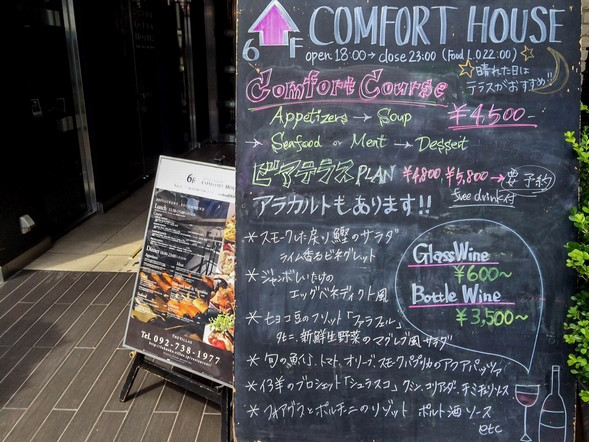 COMFORT HOUSE
6F
open 18:00→close 23:00 (Food L.O 22:00)
☆晴れた日は
テラスがおすすめ!!
Comfort Course
¥4,500-
Appetizers → Soup
→ Seafood or Meat → Dessert
ビアテラス PLAN ¥4,800 ¥5,800→要予約
free drink付
アラカルトもあります!!
*スモークした戻り鰹のサラダ
ライム香るビネグレット
*ジャンボしいたけの
エッグベネディクト風
*ヒヨコ豆のフリット「ファラフェル」
タヒニ、新鮮生野菜のマグレブ風サラダ
*旬の魚介、トマト、オリーブ、スモークパプリカのアクアパッツァ
*仔羊のブロシェット「シュラスコ」クミン、コリアンダー、チミチュリソース
*フォアグラとポルチーニのリゾット ポルト酒ソース
etc
Glass Wine
¥600~
Bottle Wine
¥3,500~
6F
COMFORT HOUSE
Lunch
Dinner
Tel. 092-738-1977